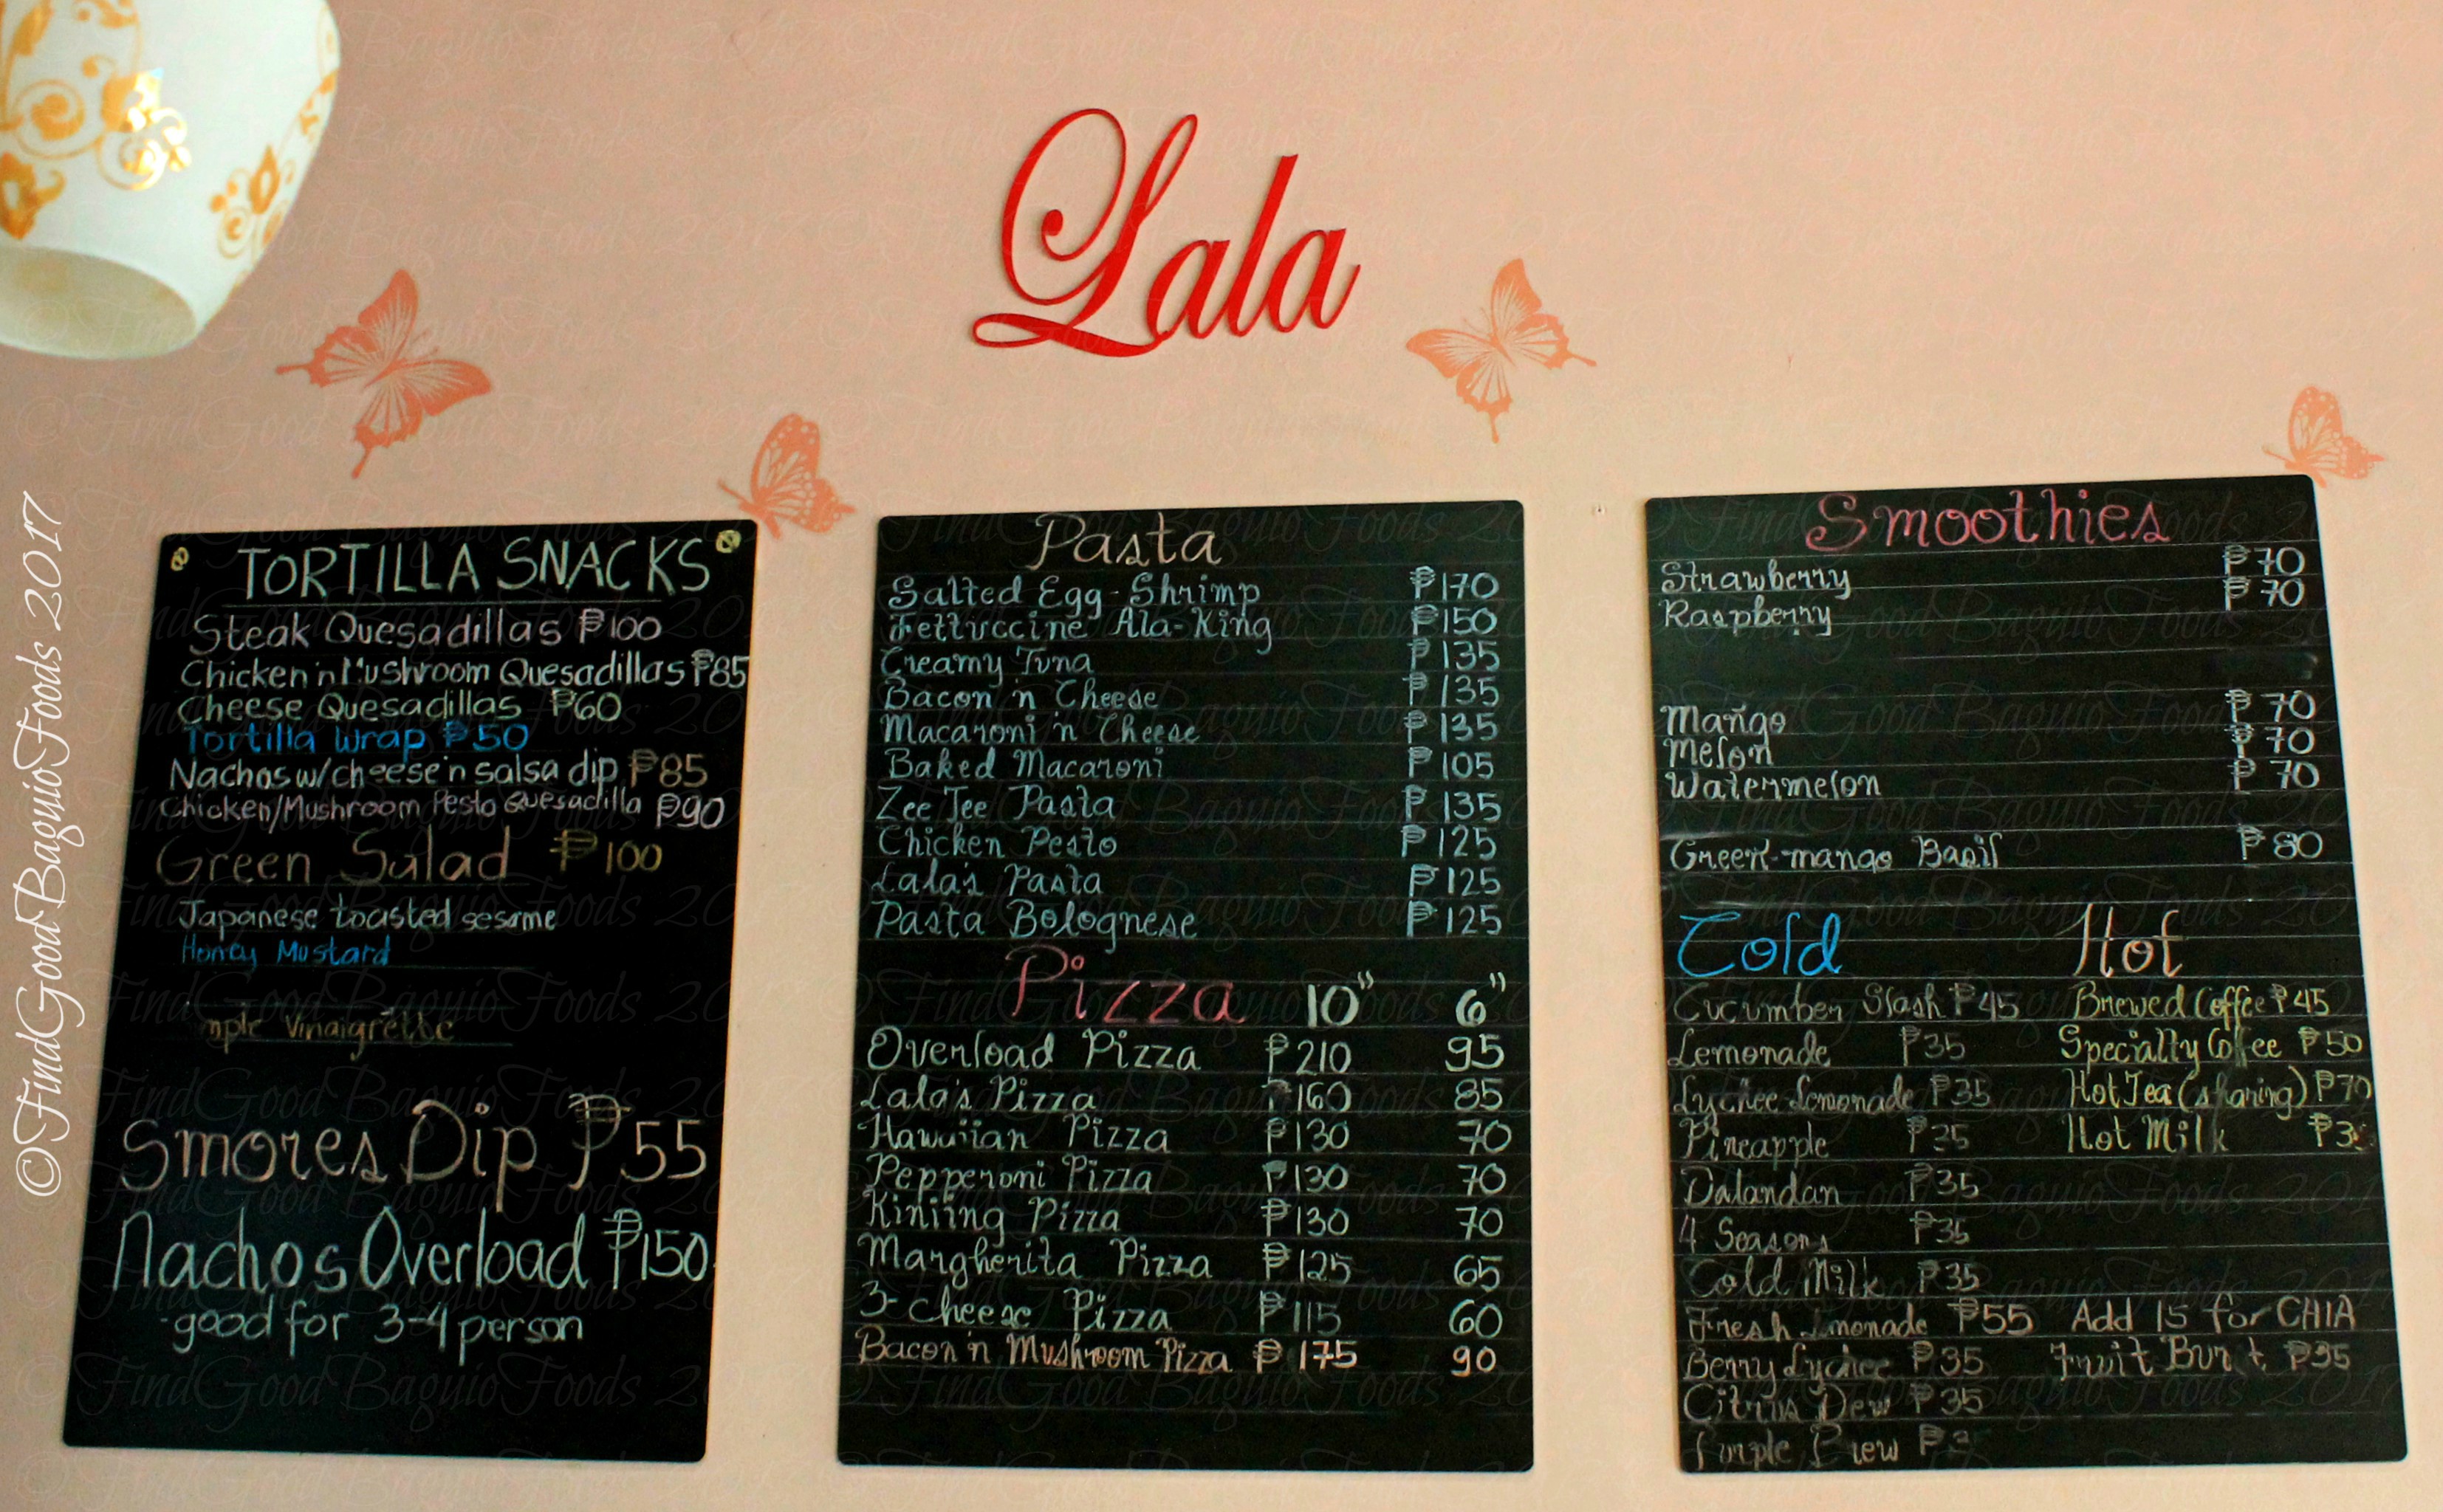 Lala
TORTILLA SNACKS
Steak Quesadillas ₱100
Chicken 'n Mushroom Quesadillas ₱85
Cheese Quesadillas ₱60
Tortilla Wrap ₱50
Nachos w/cheese 'n salsa dip ₱85
Chicken/Mushroom Pesto Quesadilla ₱90
Green Salad ₱100
Japanese toasted sesame
Honey Mustard
Vinaigrette
Smores Dip ₱55
Nachos Overload ₱150
-good for 3-4 person
Pasta
Salted Egg-Shrimp ₱170
Fettuccine Ala-King ₱150
Creamy Tuna ₱135
Bacon 'n Cheese ₱135
Macaroni 'n Cheese ₱135
Baked Macaroni ₱105
Zee Tee Pasta ₱135
Chicken Pesto ₱125
Lala's Pasta ₱125
Pasta Bolognese ₱125
Pizza 10" 6"
Overload Pizza ₱210 95
Lala's Pizza ₱160 85
Hawaiian Pizza ₱130 70
Pepperoni Pizza ₱130 70
Kiniing Pizza ₱130 70
Margherita Pizza ₱125 65
3-cheese Pizza ₱115 60
Bacon 'n Mushroom Pizza ₱175 90
Smoothies
Strawberry ₱70
Raspberry ₱70
Mango ₱70
Melon ₱70
Watermelon ₱70
Green-mango Basil ₱80
Cold Hot
Cucumber Slash ₱45 Brewed Coffee ₱45
Lemonade ₱35 Specialty Coffee ₱50
Lychee Lemonade ₱35 Hot Tea (sharing) ₱70
Pineapple ₱35 Hot Milk
Dalandan ₱35
4 Seasons ₱35
Cold Milk ₱35
Fresh Lemonade ₱55 Add 15 for CHIA
Berry Lychee ₱35 Fruit ₱35
Citrus Dew ₱35
©FindGoodBaguioFoods 2017